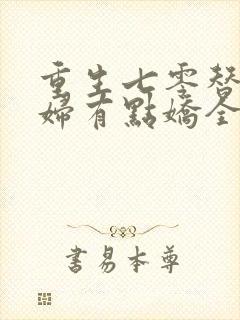 重生七零替
婦有點嬌全
書易本尊